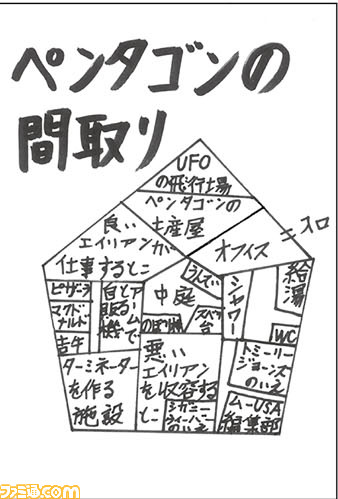 ペンタゴンの
間取り
UFO
の飛行場
ペンタゴンの
土産屋
良い
エイリアンが
仕事するとこ
オフィス
ニスロ
ピザーラ
マクド
ナルド
吉牛
中庭
うんてい
スベリ
台
のぼり棒
シャワー
給
湯
WC
トミーリー
ジョーンズ
のいえ
ムーUSA
編集部
ターミネーター
を作る
施設
悪い
エイリアン
を収容する
とこ
シガニー
ウィーバー
のいえ
ファミ通.com